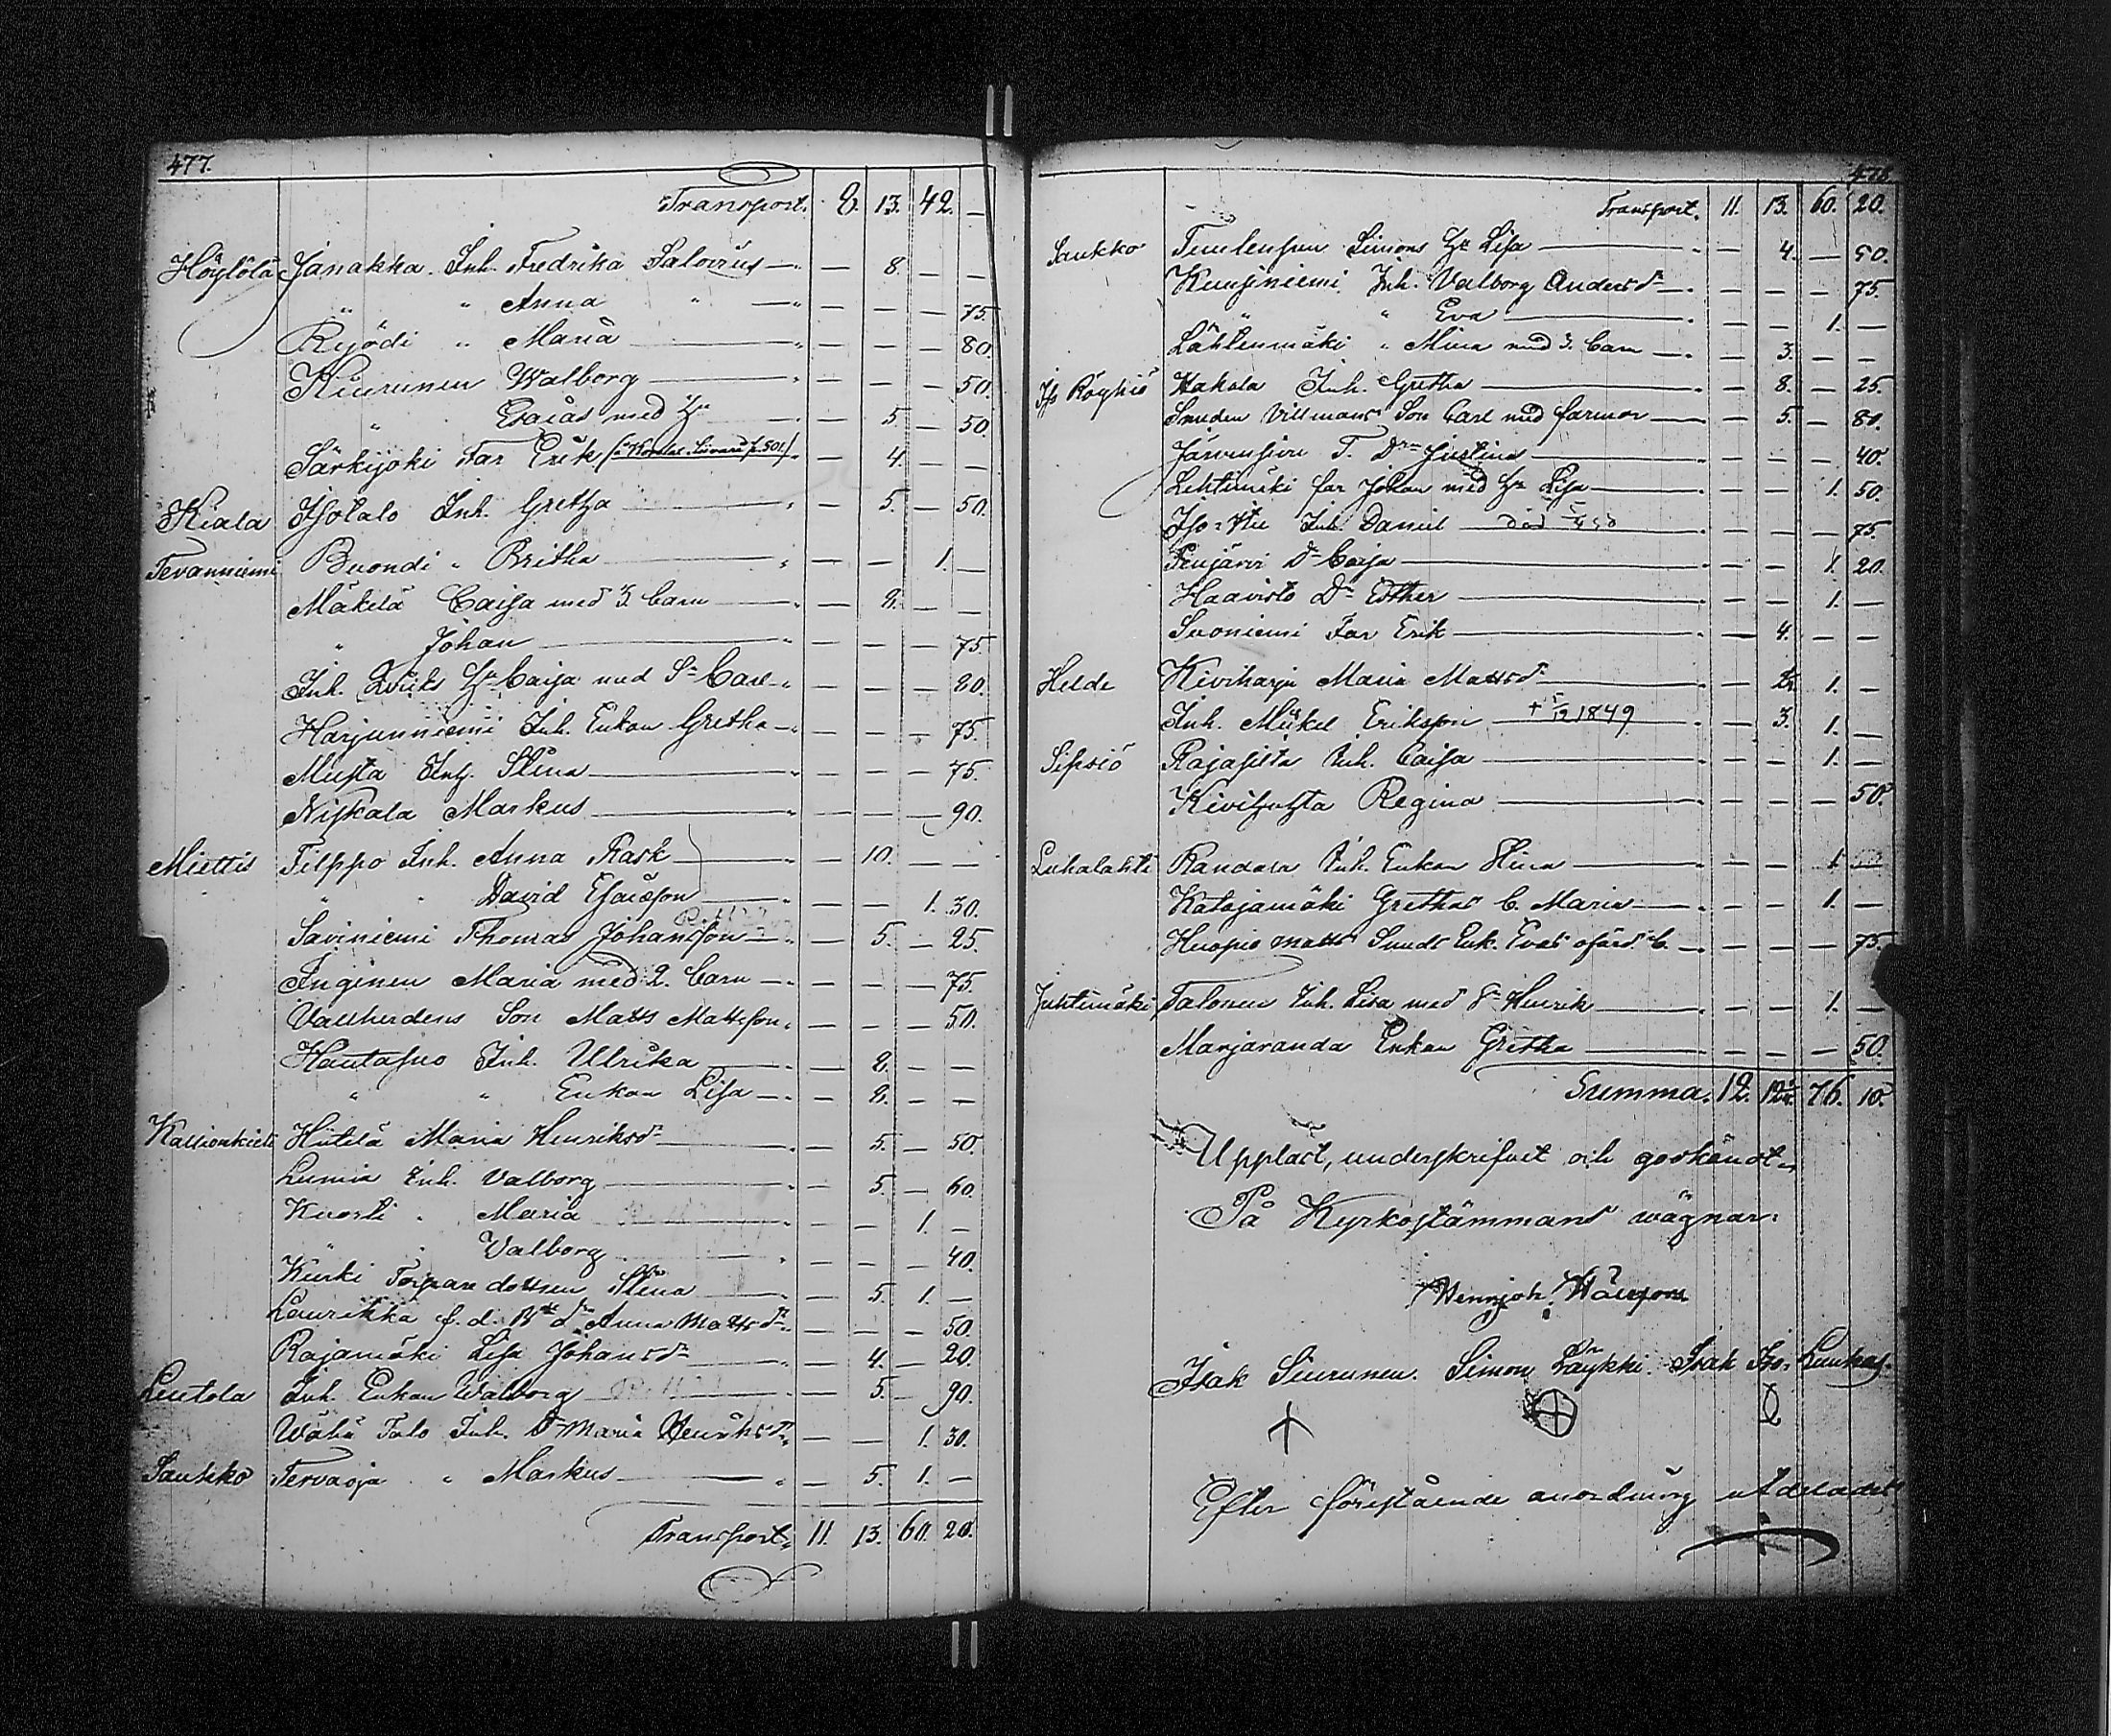 477.
Transport. 8. 13. 42. —
Höylölä Janakka. Inh. Fredrika Salovius — — 8. — —
" " Anna " — — — — 75.
Ryödi " Maria — — — — 80.
Kiurunen Walborg — — — — 50.
" Esaias med Hu — — 5. — 50.
Särkijoki Far Erik — 4. — —
Kiala Isotalo Inh. Gretha — 5. — 50.
Tevanniemi Buondi " Britha — — — 1. —
Mäkelä Caisa med 3. barn — — 8. — —
" Johan — — — — 75.
Inh. Hu Caisa med Sn Carl — — — 80.
Harjunniemi Inh. Enkan Gretha — — — — 75.
Musta Inh. Stina — — — — 75.
Niskala Markus — — — — 90.
Miettis Filppo Inh. Anna Rask — — 10. — —
" " David Esaiasson — — — 1. 30.
Saviniemi Thomas Johansson — — 5. — 25.
Inginen Maria med 2. barn — — — — 75.
Vallherdens Son Matts Mattsson — — — 50.
Hautasuo Inh. Ulrika — — 8. — —
" " Enkan Lisa — — 8. — —
Hiitelä Maria Henriksdr — — 5. — 50.
Lumia Inh. Valborg — — 5. — 60.
Kuorti " Maria — — — 1. —
" Valborg — — — — 40.
Kurki Torpare dottren Stina — — 5. 1. —
Laurikka f. d. Anna Mattsdr — — — 50.
Rajamäki Lisa Johansdr — — 4. — 20.
Luutola Inh. Enkan Walborg — — 5. — 90.
Wähä Talo Inh. Dr Maria Henriksdr — — 1. 30.
Saukko Tervaoja " Markus — — 5. 1. —
Transport. 11. 13. 60. 20.
478.
Transport. 11. 13. 60. 20.
Saukko Simons Hu Lisa — — 4. — 50.
Kuusiniemi Inh. Valborg Andersdr — — — — 75.
" " Eva — — — 1. —
Lähteenmäki " Mina med 3. barn — — 3. — —
Iso Röyhiö Hakala Inh. Gretha — — 8. — 25.
Smeden Villmans Son Carl med farmor — — 5. — 80.
T. Dr Justina — — — — 40.
Lehtimäki far Johan med Hu Lisa — — — 1. 50.
Inh. Daniel — — — — 75.
Dr Caisa — — — 1. 20.
Haavisto Dr Esther — — — 1. —
Suoniemi Far Erik — — 4. — —
Helde Kiviharju Maria Mattsdr — — 1. —
Inh. Mickel Eriksson + 5/12 1849 — 3. 1. —
Sipsiö Rajasilta Inh. Caisa — — — 1. —
Regina — — — — 50.
Luhalahti Randara Inh. Enkan Stina — — — 1. —
Katajamäki Grethas b. Maria — — — 1. —
Huopio Matts Sunds Enk. Evas — — — — 75.
Juhtimäki Talonen Inh. Lisa med Sn Henrik — — — 1. —
Marjaranda Enkan Gretha — — — — 50.
Summa. 12. 76. 10.
Uppläst, underskrifvet och godkändt.
På Kyrkostämmans wägnar:
Isak Siurunen. Simon Läykki. Isak Iso-
Efter förestående anordning utdeladt